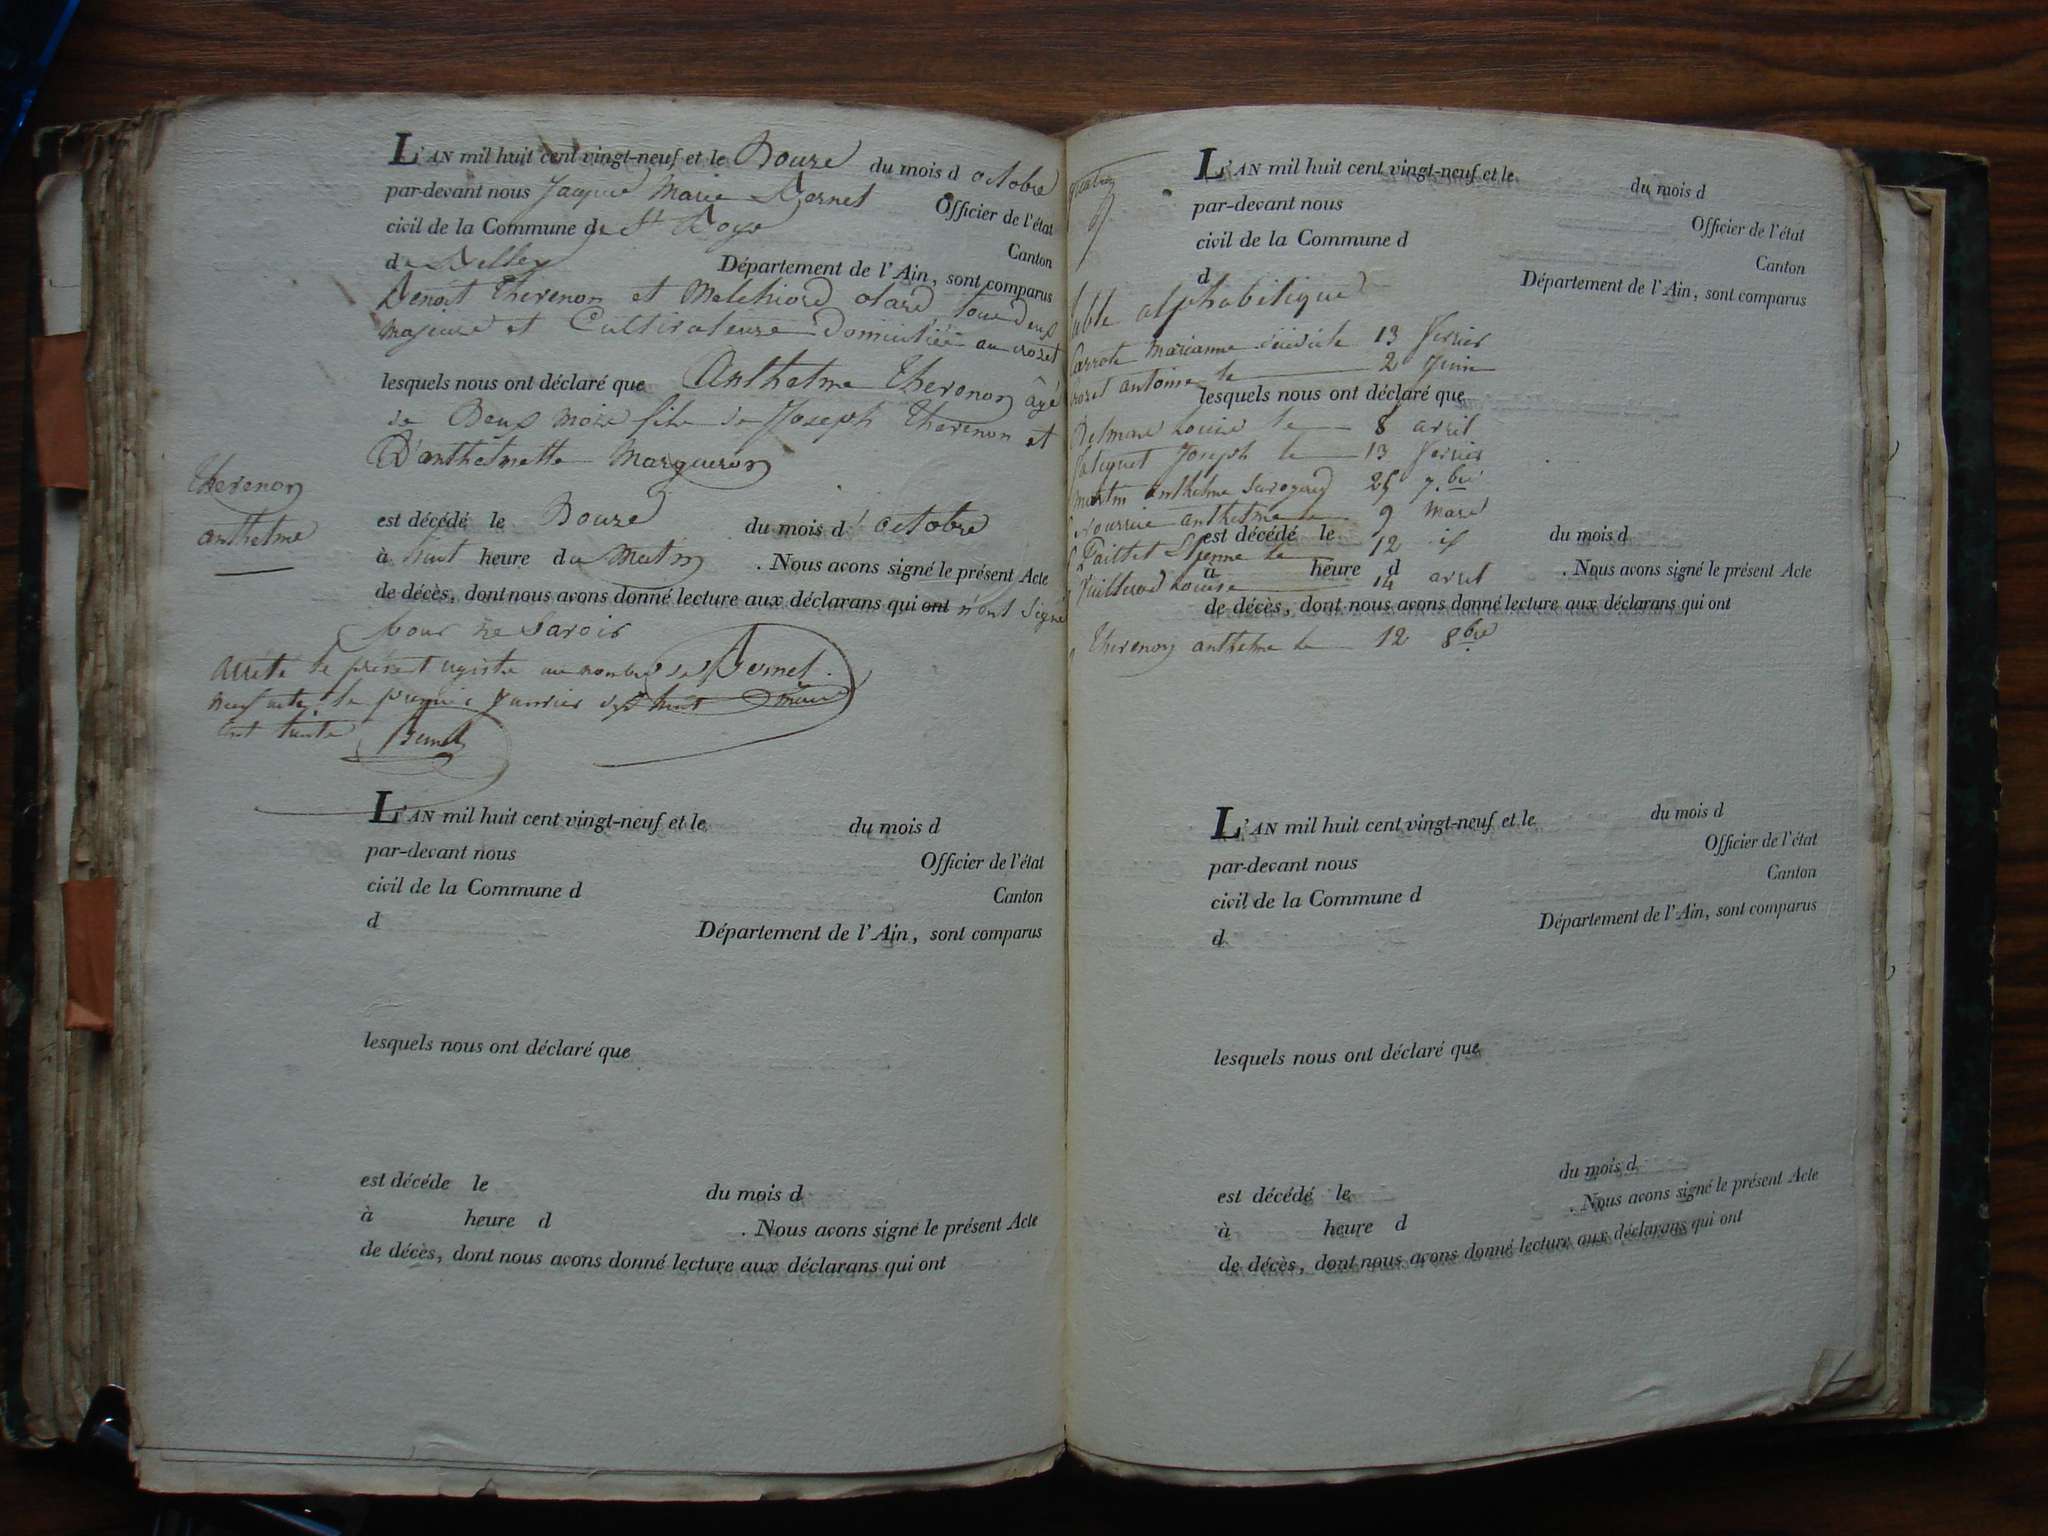 L'AN mil huit cent vingt-neuf et le Douze du mois d octobre
par-devant nous Jacque Marie Bernet Officier de l'état
civil de la Commune de St Canton
de Belley Département de l'Ain, sont comparus
Benoit Thevenon et Melchiord olard tous deux
majeurs et Cultivateurs Domiciliée au crozet
lesquels nous ont déclaré que Anthelme Thevenon âgé
de Deux mois fils de Joseph Thevenon et
D'anthelmette Margueron
Thevenon
anthelme
est décédé le Douze du mois d' octobre
à huit heure du Matin . Nous avons signé le présent Acte
de décès, dont nous avons donné lecture aux déclarans qui ont n'ont signé
pour ne savoir
Bernet
maire
arrêté le présent registre au nombre de
neuf actes le premier janvier dix huit
cent trente Bernet
L'AN mil huit cent vingt-neuf et le du mois d
par-devant nous Officier de l'état
civil de la Commune d Canton
d Département de l'Ain, sont comparus
lesquels nous ont déclaré que
est décédé le du mois d
à heure d . Nous avons signé le présent Acte
de décès, dont nous avons donné lecture aux déclarans qui ont
L'AN mil huit cent vingt-neuf et le du mois d
par-devant nous Officier de l'état
civil de la Commune d Canton
d Département de l'Ain, sont comparus
table alphabétique
marianne le 13 fevrier
antoine le 2 Juin
lesquels nous ont déclaré que
Louise le 8 avril
Joseph le 13 fevrier
martin anthelme 25 7.bre
anthelme le 9 mars
est décédé le du mois d
le 12 id
à heure d . Nous avons signé le présent Acte
Louise 14 avril
de décès, dont nous avons donné lecture aux déclarans qui ont
Thevenon anthelme le 12 8bre
L'AN mil huit cent vingt-neuf et le du mois d
par-devant nous Officier de l'état
civil de la Commune d Canton
d Département de l'Ain, sont comparus
lesquels nous ont déclaré que
est décédé le du mois d
à heure d . Nous avons signé le présent Acte
de décès, dont nous avons donné lecture aux déclarans qui ont